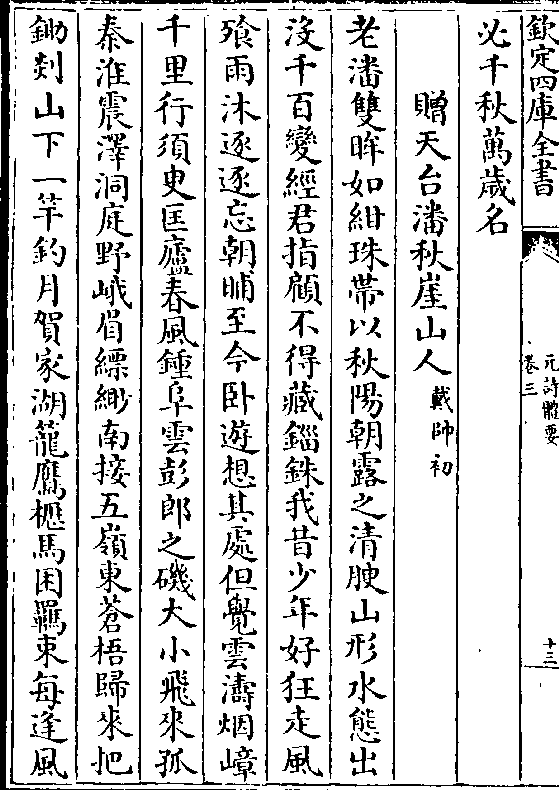 欽定四庫全書
元詩體要
卷三
十三
必千秋萬歲名
贈天台潘秋崖山人 戴帥初
老潘雙眸如紺珠帶以秋陽朝露之清腴山形水態出
沒千百變經君指顧不得藏錙銖我昔少年好狂走風
飱雨沐逐逐忘朝晡至今臥遊想其處但覺雲濤烟嶂
千里行須臾匡廬春風鍾阜雲彭郎之磯大小飛來孤
秦淮震澤洞庭野峨眉縹緲南接五嶺東蒼梧歸來把
鋤剡山下一竿釣月賀家湖籠鷹櫪馬困羈束每逢風